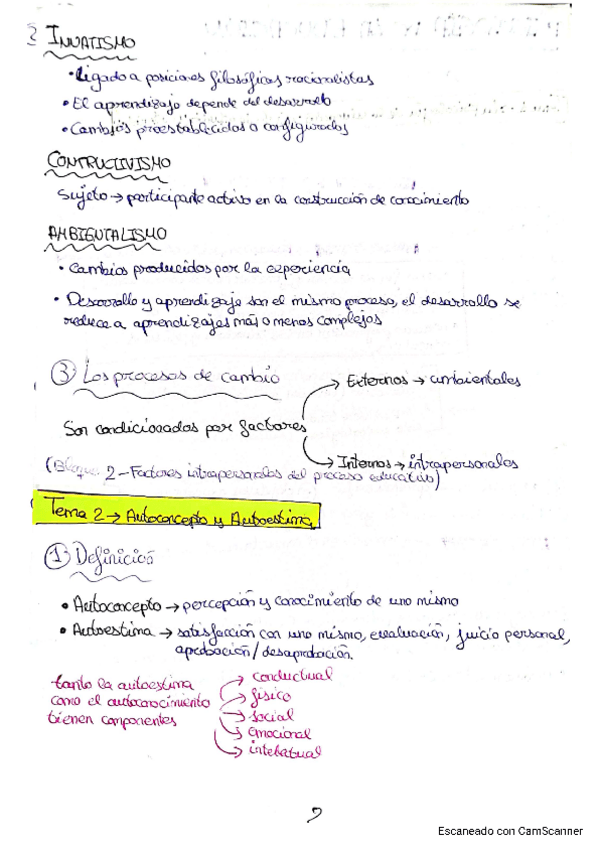 INNATISMO
• Ligado a posiciones filosóficas racionalistas
• El aprendizaje depende del desarrollo
• Cambios preestablecidos o configurados
CONTRUCTIVISMO
Sujeto → participante activo en la construcción de conocimiento
AMBIENTALISMO
• Cambios producidos por la experiencia
• Desarrollo y aprendizaje son el mismo proceso, el desarrollo se
reduce a aprendizajes más o menos complejos
③ Los procesos de cambio
Externos → ambientales
Son condicionados por factores
Internos → intrapersonales
(Bloque 2 – Factores intrapersonales del proceso educativo)
Tema 2 → Autoconcepto y Autoestima
① Definición
• Autoconcepto → percepción y conocimiento de uno mismo
• Autoestima → satisfacción con uno mismo, evaluación, juicio personal,
aprobación/desaprobación.
tanto la autoestima
como el autoconocimiento
tienen componentes
→ conductual
→ físico
→ social
→ emocional
→ intelectual
Escaneado con CamScanner